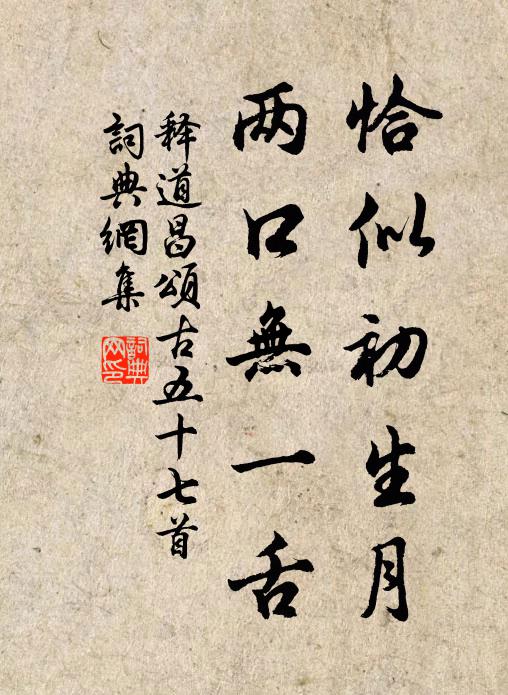 恰似初生月
两口無一舌
释道昌頌古五十七首
詞典網集
詞典网印